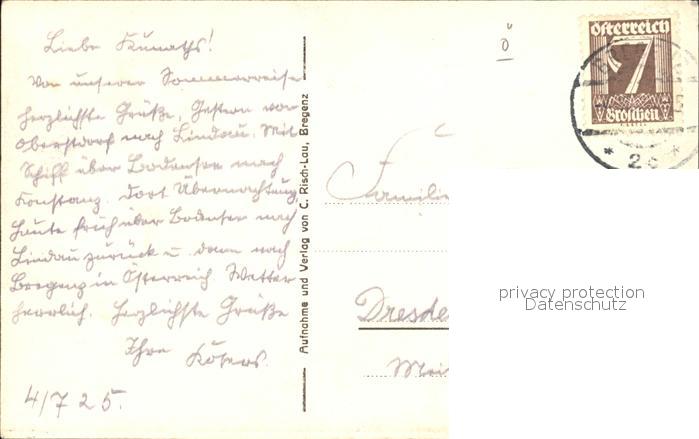 Liebe Kunaths!
Von unserer Sommerreise
herzlichste Grüße. Gestern von
Oberstdorf nach Lindau. Mit
Schiff über Bodensee nach
Konstanz. Dort Übernachtung,
heute früh über Bodensee nach
Lindau zurück u. dann nach
Bregenz in Österreich. Wetter
herrlich. Herzlichste Grüße
Ihre
4/7 25.
Aufnahme und Verlag von C. Risch-Lau, Bregenz
ö
Österreich
7
Groschen
* 2c *
Familie
Dresden
privacy protection
Datenschutz